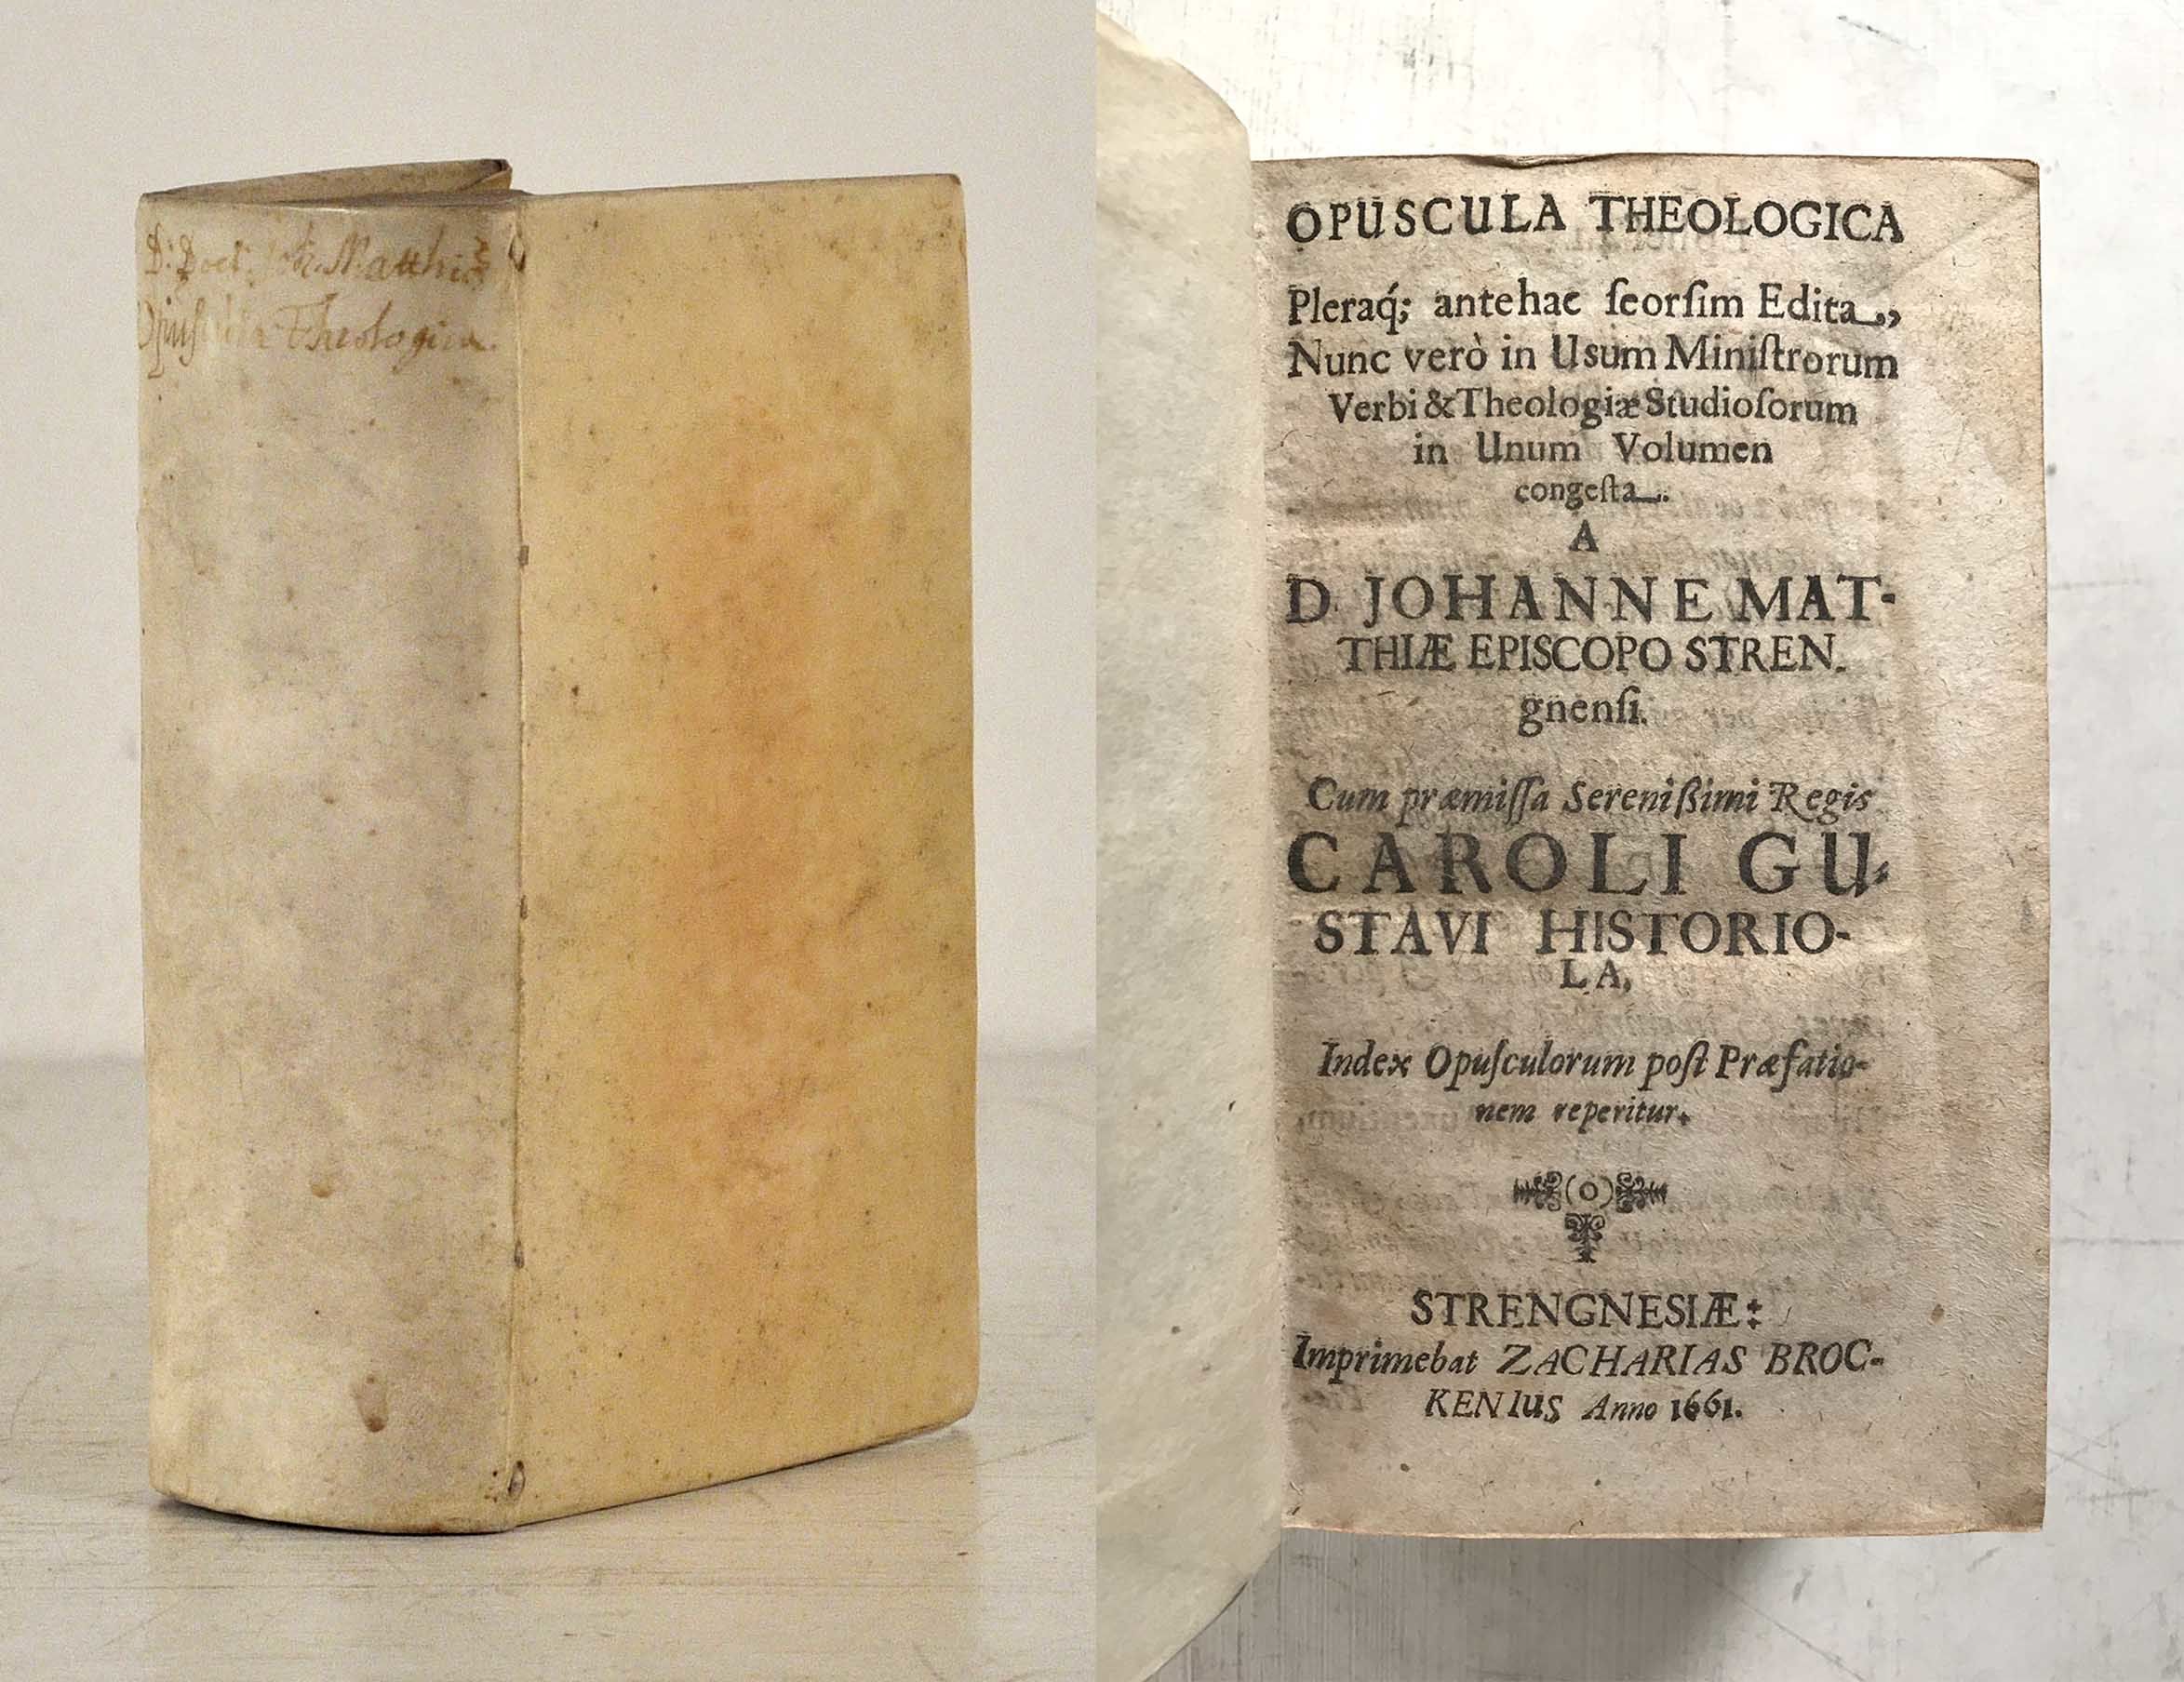 D: Doct. Joh. Matthiæ
Opuscula Theologica.
OPUSCULA THEOLOGICA
Pleraq́; antehac ſeorſim Edita,
Nunc verò in Usum Miniſtrorum
Verbi & Theologiæ Studioſorum
in Unum Volumen
congeſta.
A
D. JOHANNE MAT-
THIÆ EPISCOPO STREN.
gnenſi.
Cum præmiſſa Serenißimi Regis
CAROLI GU-
STAVI HISTORIO-
LA,
Index Opuſculorum poſt Præfatio-
nem reperitur.
(O)
STRENGNESIÆ:
Imprimebat ZACHARIAS BROC-
KENIUS Anno 1661.